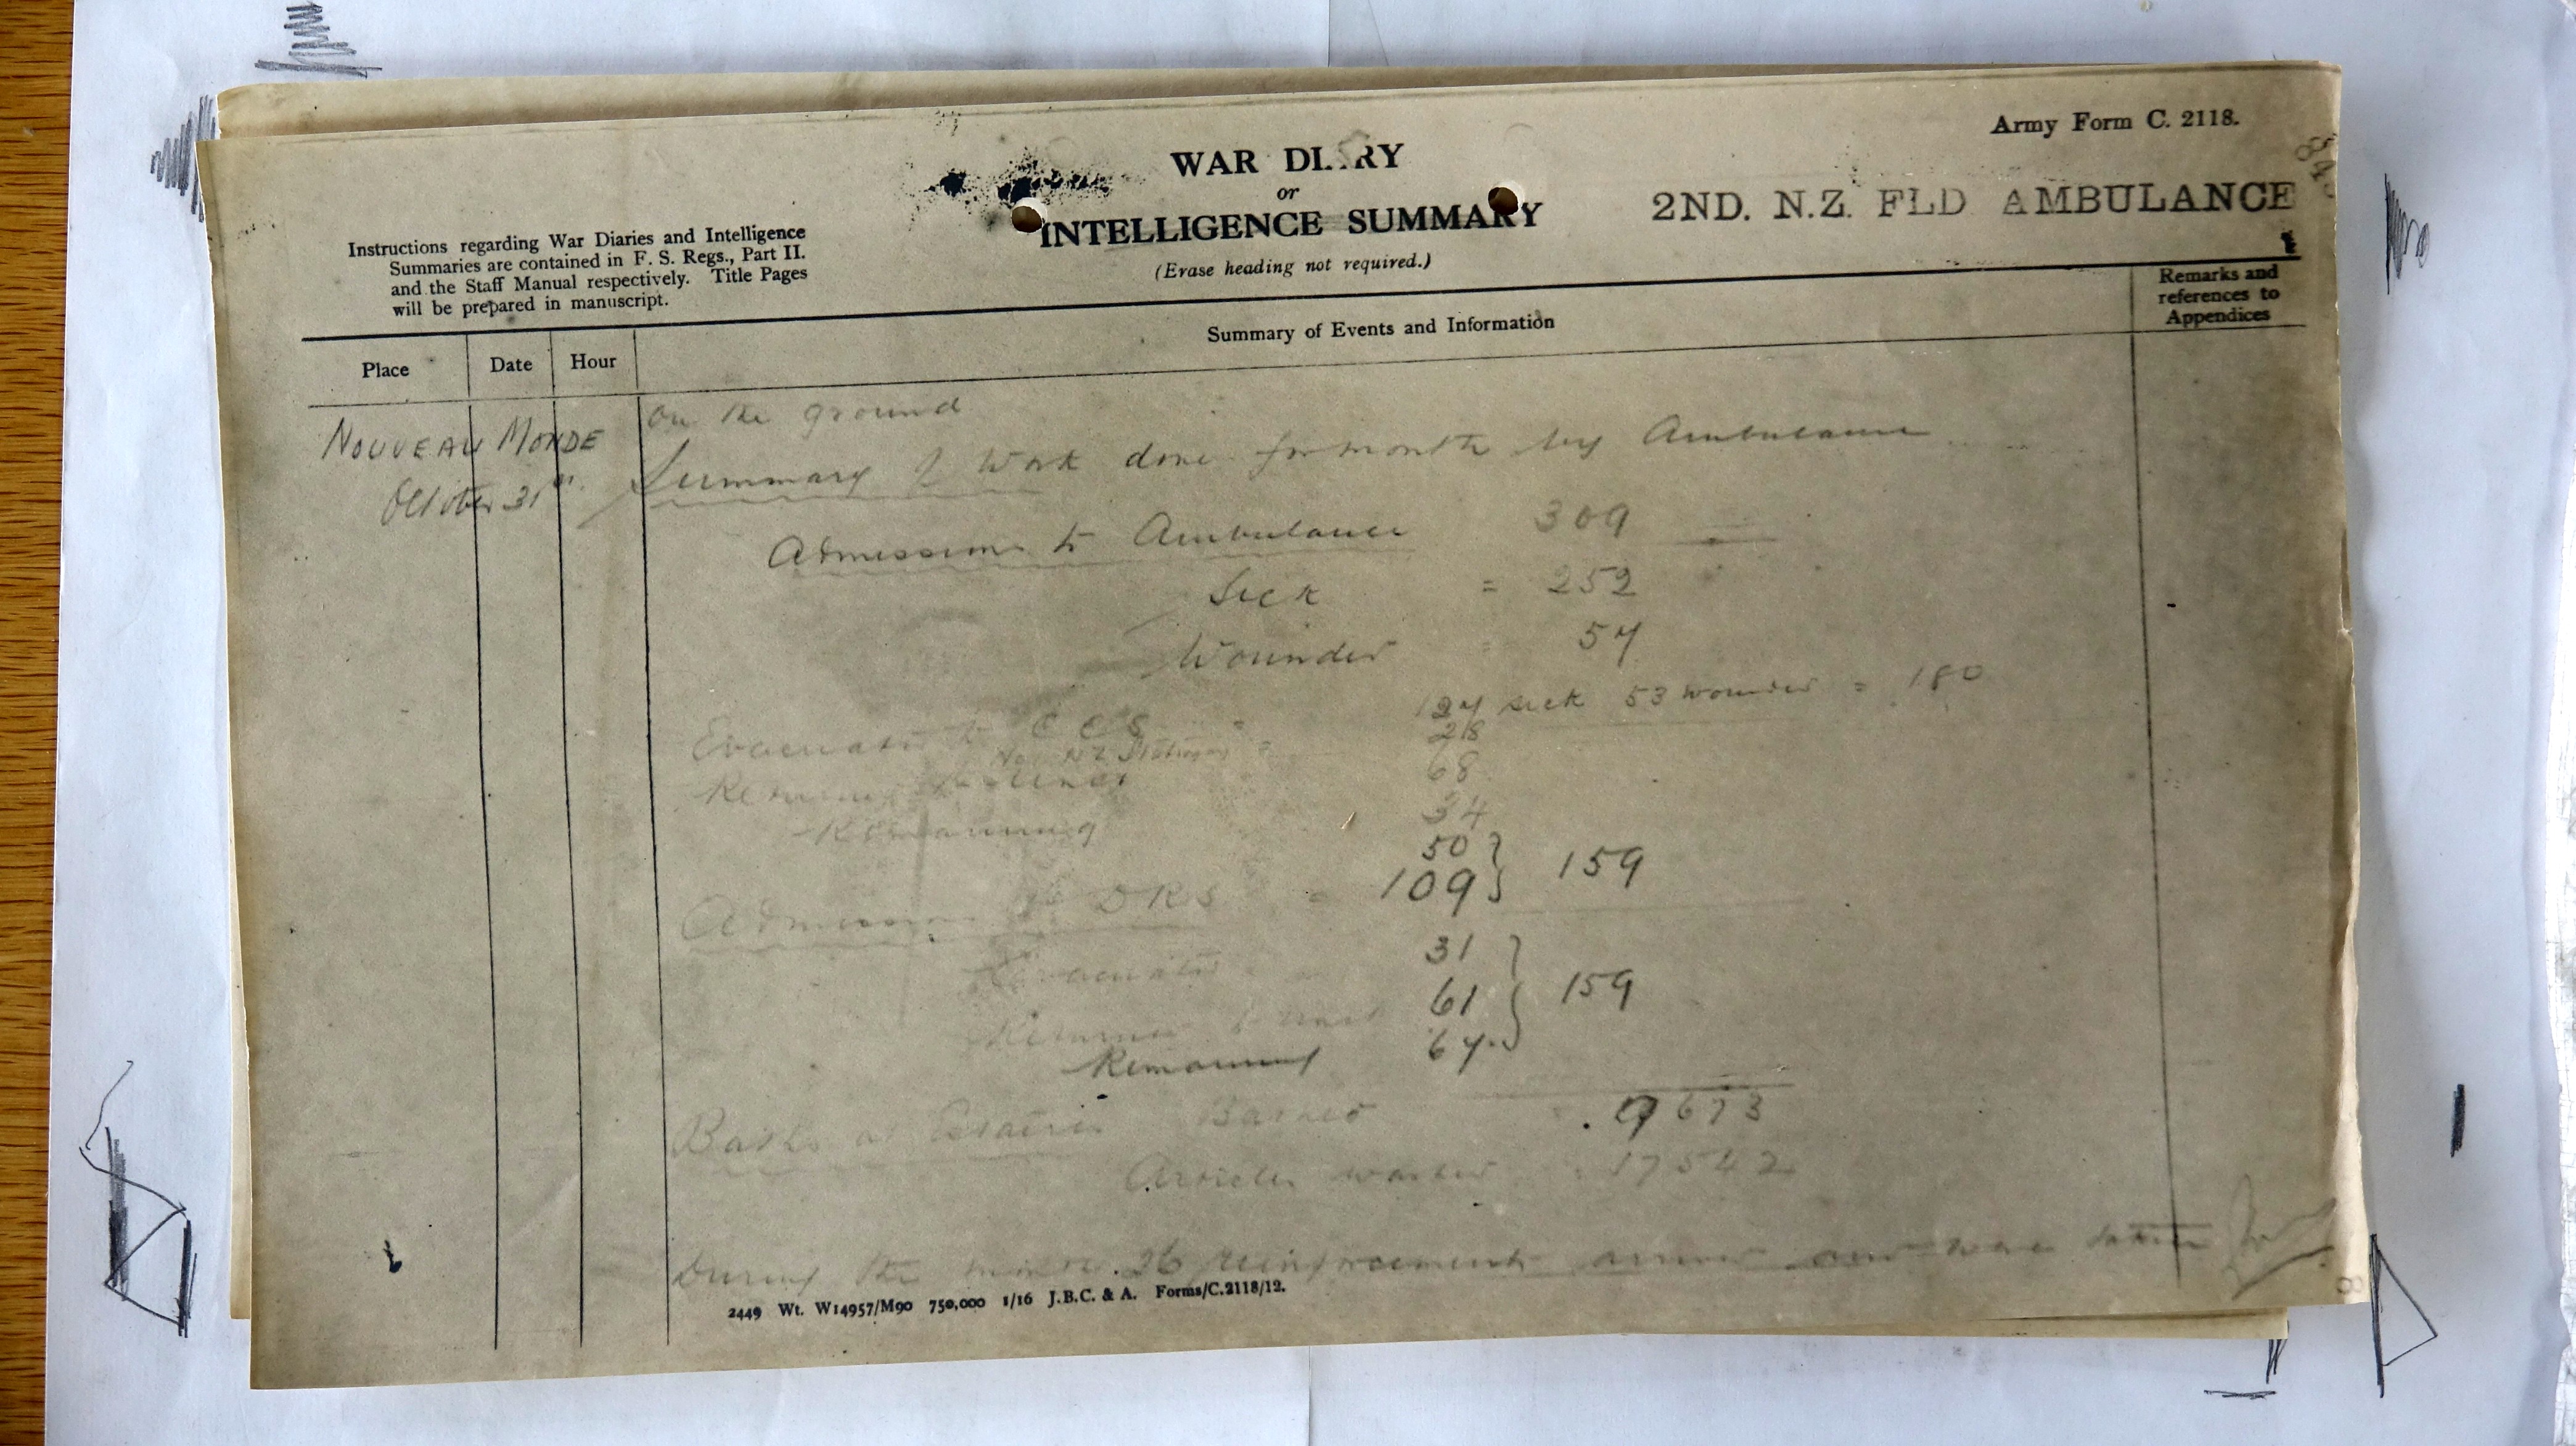 Army Form C. 2118.
WAR DI..RY
or
INTELLIGENCE SUMMARY
(Erase heading not required.)
2ND. N.Z. FLD AMBULANCE
Instructions regarding War Diaries and Intelligence
Summaries are contained in F. S. Regs., Part II.
and the Staff Manual respectively. Title Pages
will be prepared in manuscript.
Place Date Hour
Summary of Events and Information
Remarks and
references to
Appendices
NOUVEAU MONDE
October 31st
on the ground
Summary of Work done for month by Ambulance
Admissions to Ambulance 309
Sick = 252
Wounded = 57
Evacuated to C C S = 127 sick 53 wounded = 180
N Z Stationary = 28
Returned to Lines 68
Remaining 34
50
Admissions to D R S = 109 } 159
Evacuated 31
Returned to 61 } 159
Remaining 67
Baths at Estaires Bathed 9673
Articles washed 17542
During the month 26 reinforcements arrived and were taken
2449 Wt. W14957/M90 750,000 1/16 J.B.C. & A. Forms/C.2118/12.